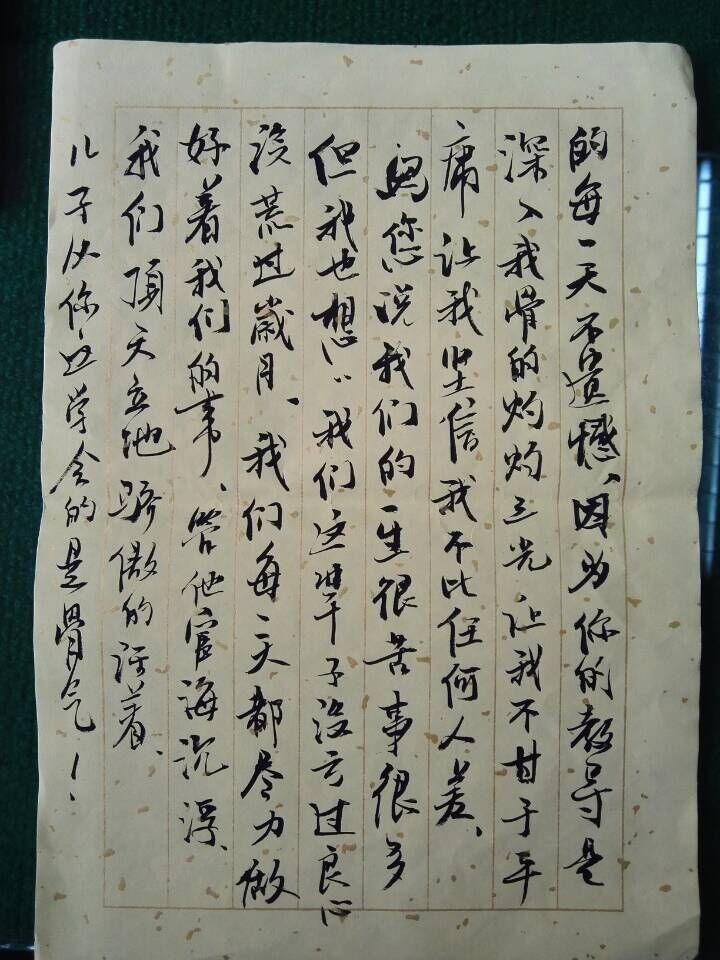 的每一天不遗憾、因为你的教导是
深入我骨的灼灼之光让我不甘于平
庸让我坚信我不比任何人差、
妈您说我们的一生很苦事很多
但我也想:我们这辈子没亏过良心
没荒过岁月、我们每一天都尽力做
好着我们的事、管他宦海沉浮、
我们顶天立地骄傲的活着、
儿子从你这学会的是骨气!